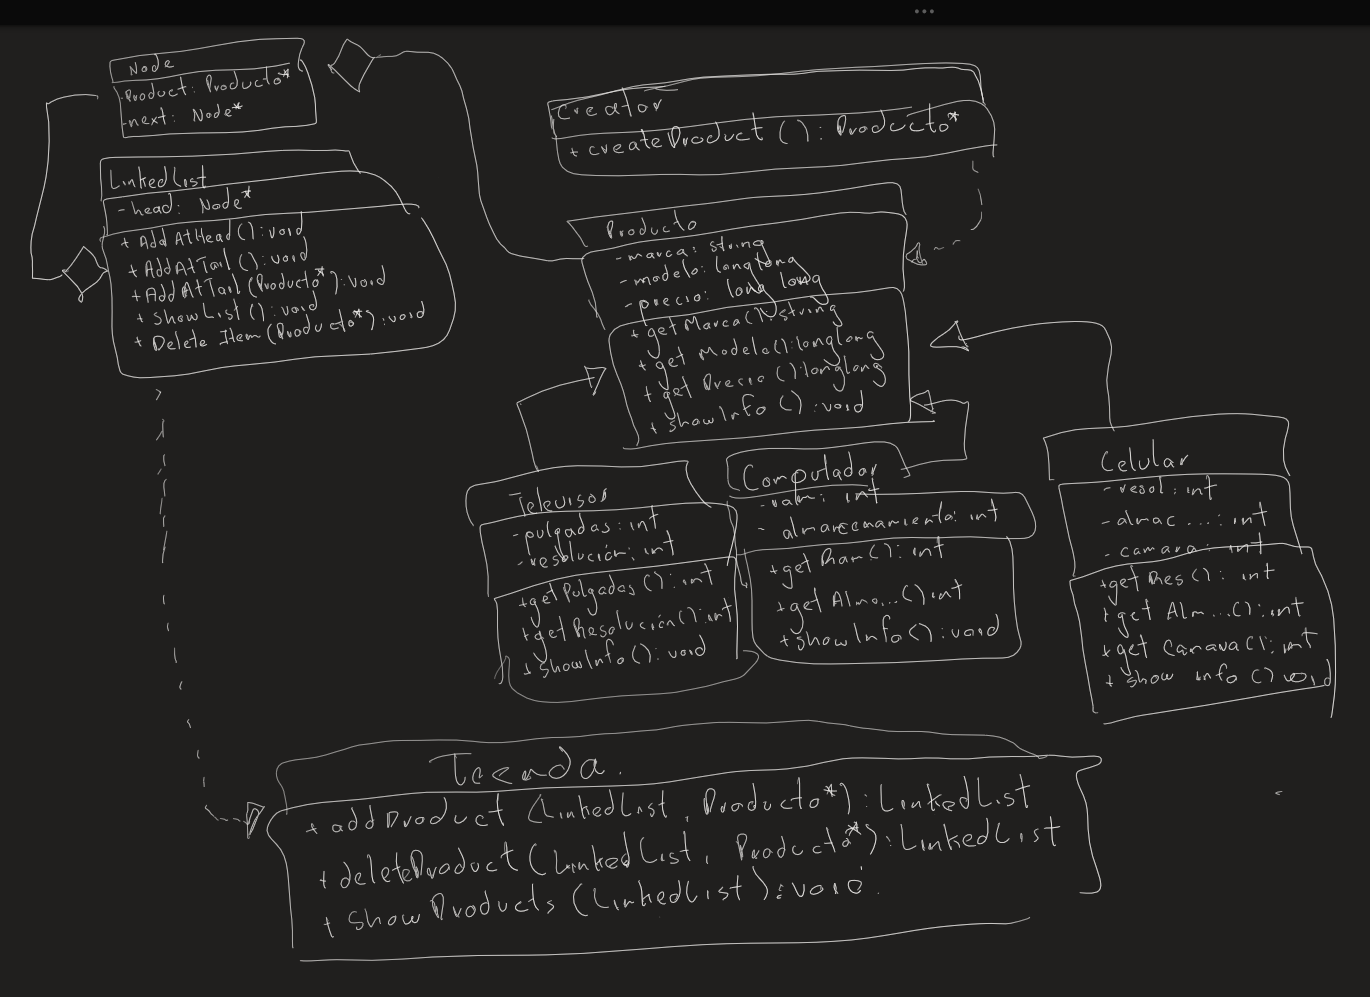 Node
-Product: Producto*
-next: Node*
LinkedList
-head: Node*
+ AddAtHead(): void
+ AddAtTail(): void
+ AddAtTail(Producto*): void
+ showList(): void
+ Delete Item(Producto*): void
Creator
+ createProduct(): Producto*
Producto
-marca: string
-modelo: longlong
-precio: long long
+ getMarca(): string
+ get Modelo(): longlong
+ get Precio(): longlong
+ showInfo(): void
Televisor
-pulgadas: int
-resolución: int
+getPulgadas(): int
+getResolución(): int
+ showInfo(): void
Computador
: int
- almacenamiento: int
+get Ram(): int
+get Alma...() int
+showInfo(): void
Celular
- resol: int
-almac ...: int
- camara: int
+get Res(): int
+get Alm...(): int
+get Camara(): int
+ show info () void
Tienda.
+ addProduct (LinkedList, Producto*): LinkedList
+ deleteProduct(LinkedList, Producto*): LinkedList
+ ShowProducts (LinkedList): void